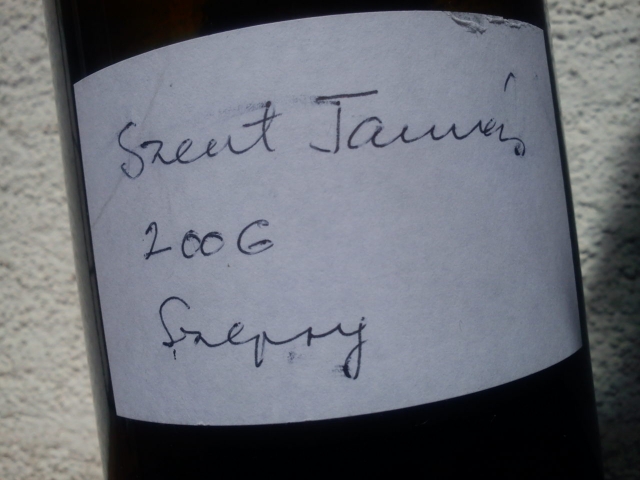 Szent Tamás
2006
Szepsy